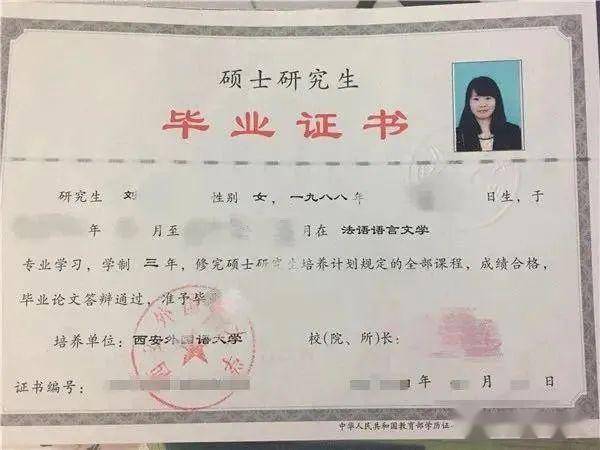 硕士研究生
毕业证书
研究生 刘 性别 女，一九八八年 日生，于
年 月至 月在 法语语言文学
专业学习，学制 三 年，修完硕士研究生培养计划规定的全部课程，成绩合格，
毕业论文答辩通过，准予毕
培养单位：西安外国语大学 校(院、所)长：
证书编号： 年 月 日
中华人民共和国教育部学历证